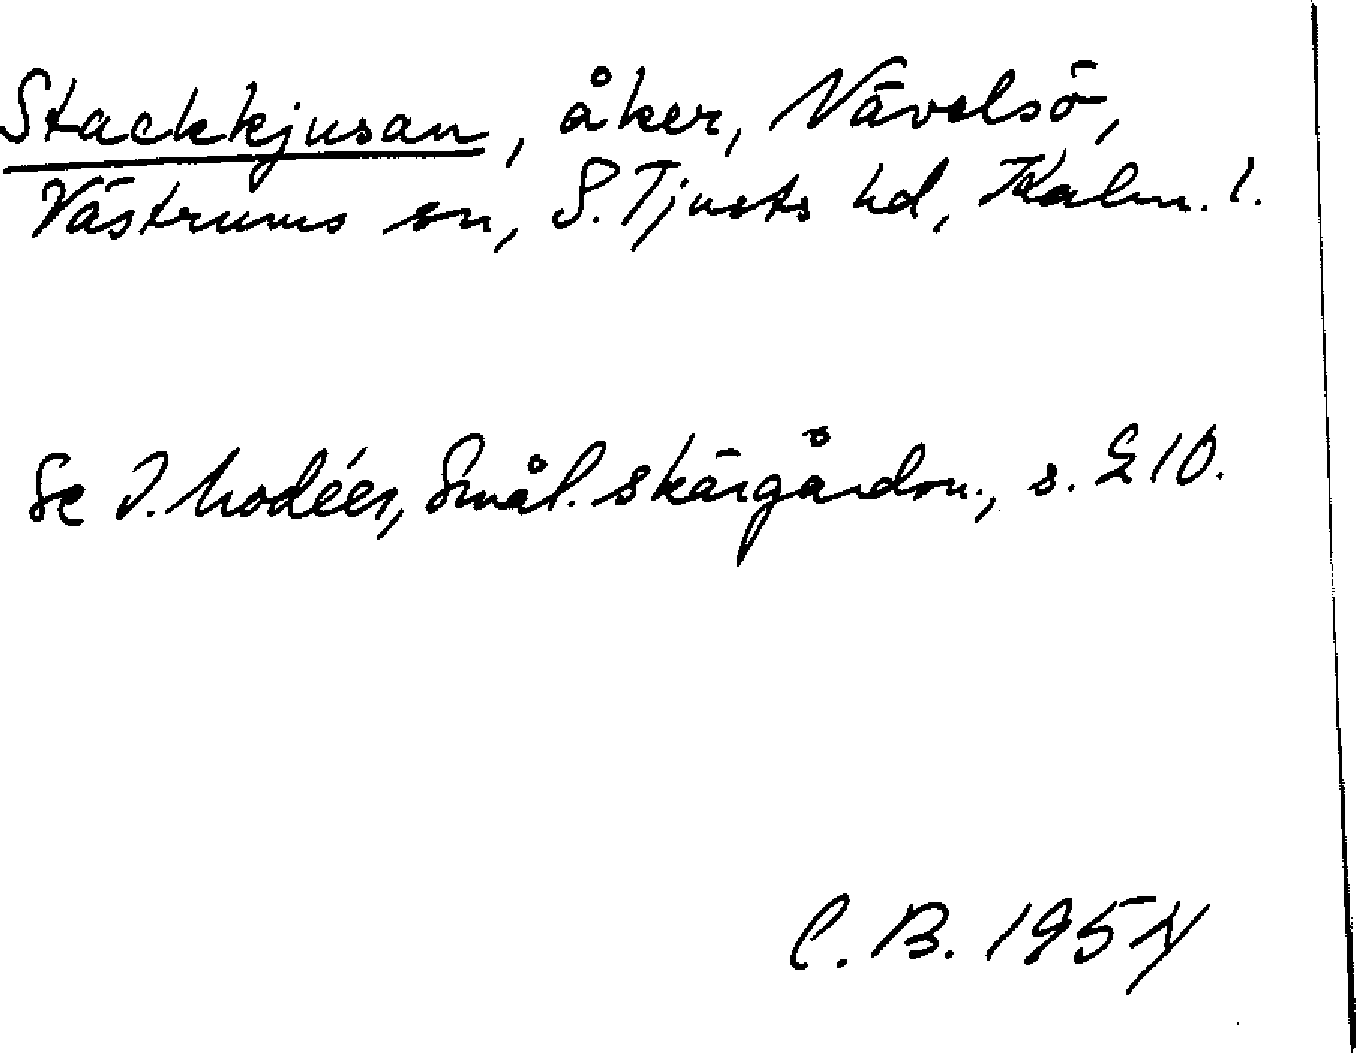 Stackkjusan, åker, Nävelsö,
Västrums sn, S. Tjusts hd, Kalm. l.
Se I. Modéer, Smål. skärgårdsn., s. 210.
C. B. 1954